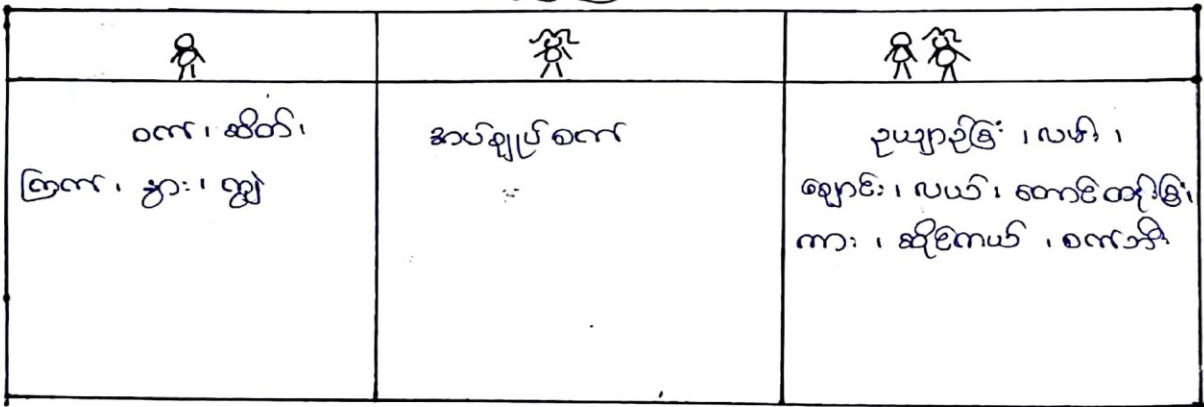 ဝက်၊ ဆိတ်၊
ကြက်၊ နွား၊ ကျွဲ
အပ်ချုပ်စက်
ဥယျာဉ်ခြံ ၊ လမ်း ၊
ချောင်း ၊ လယ် ၊ တောင်တန်းခြံ၊
ကား ၊ ဆိုင်ကယ် ၊ စက်ဘီး